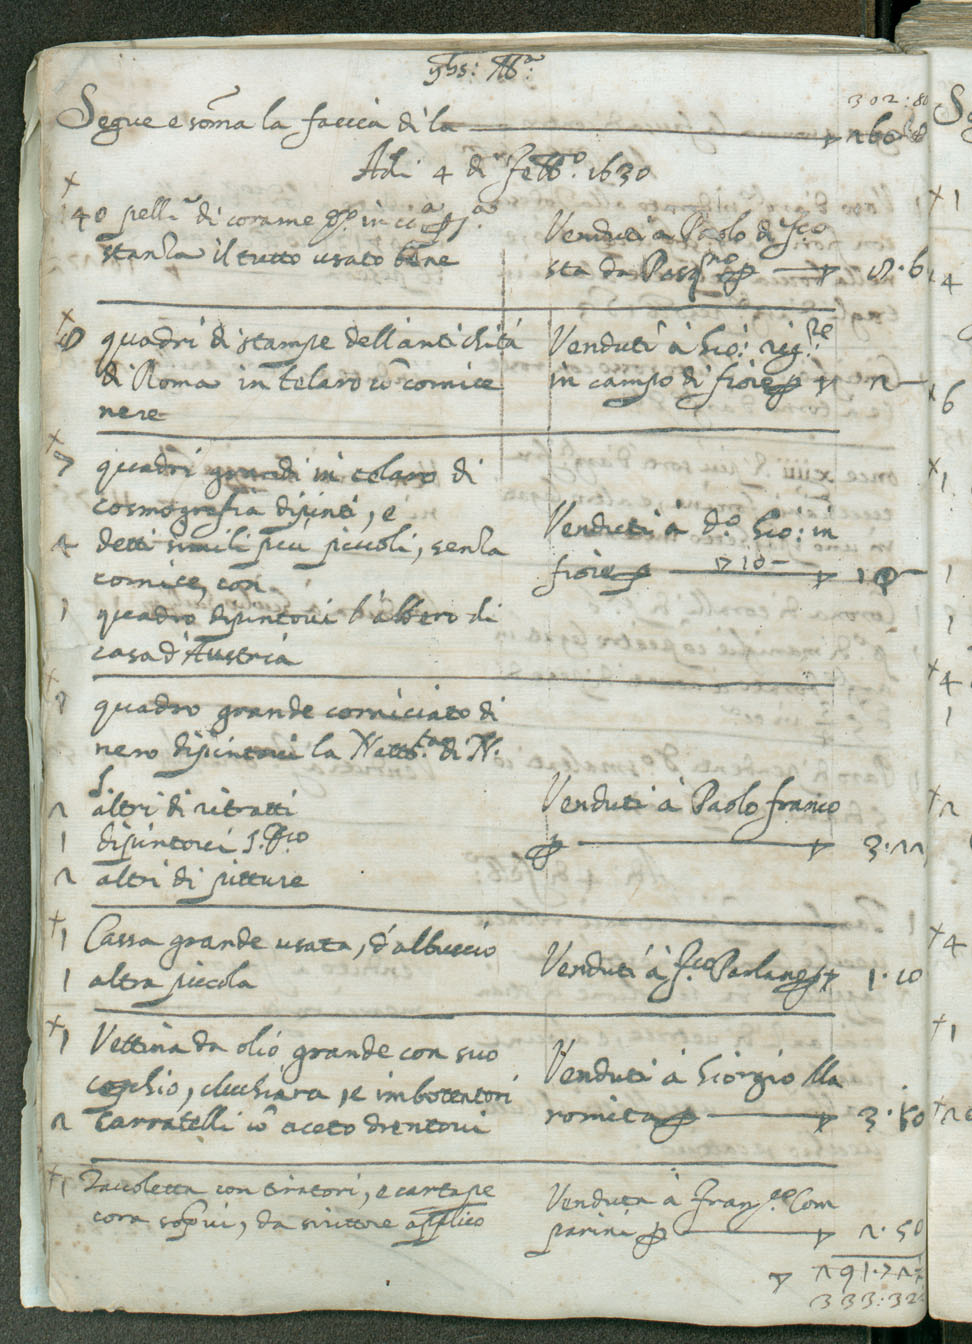 yhs: Mª
302:80
Segue e som̃a la faccia di là
Adi 4 di febbº. 1630
40 pelli di corame
stanza il tutto usato bene
Venduti à Paolo di fco
sta da Pasqno
18.6
quadri di stampe dell'antichità
di Roma in telaro cõ cornice
nere
Venduti à Gio:
in campo di fiore
2 —
7 quadri grandi in telaro di
cosmografia dipinti, e
4 detti simili piu piccoli, senza
cornice, con
1 quadro dipintovi l'albero di
casa d'Austria
Venduti a do. Gio: in
fiore
10 —
quadro grande corniciato di
nero dipintovi la Nattità di N.
S.
2 altri di ritratti
1 dipintovi S. Fco
2 altri di pitture
Venduti à Paolo franco
3.22
1 Cassa grande usata, d'albuccio
1 altra piccola
Venduti à fco
1.10
1 Vettina da olio grande con suo
coperchio, cuchiara, e imbottatori
2 Carratelli cõ aceto drentovi
Venduti à Giorgio Ma
romita
3.80
1 Tavoletta con tiratori, e cartape
cora sopvi, da scrittore
Venduta à Franco Com
parini
2.50
291.72
333:32